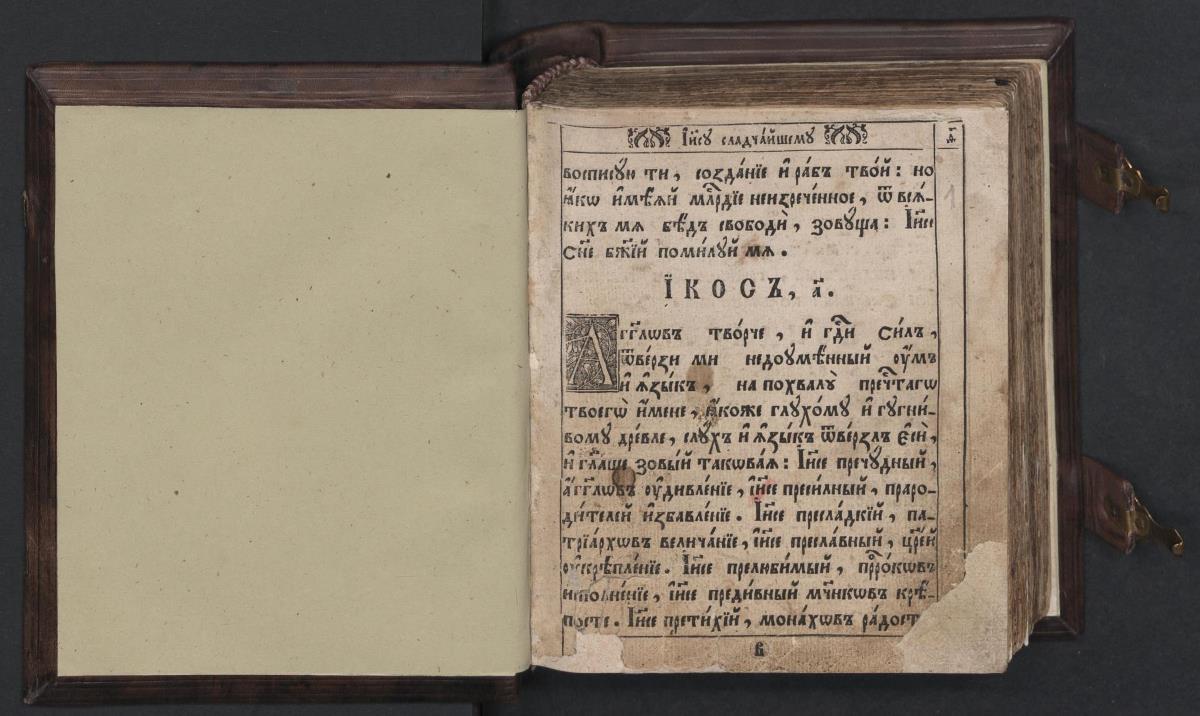 І҆и҃су сладча́йшему
восписую ти, созда́нїе и҆ ра́бъ тво́й: но
ꙗ҆́кѡ и҆мѣ́ѧй млⷭ҇рдїе неизрече́нное, ѿ всѧ́-
кихъ мѧ бѣ́дъ свободѝ, зовуща: І҆и҃се
сн҃е бж҃їй поми́луй мѧ.
І҆КОСЪ, а҃.
А҆гг҃лѡвъ тво́рче, и҆ гдⷭ҇и си́лъ,
ѿве́рзи ми недоꙋмѣ́нный оу҆́мъ
и҆ ѧ҆зы́къ, на похвалꙋ̀ пречⷭ҇тагѡ
твоегѡ̀ и҆́мене, ꙗ҆́коже глꙋхо́мꙋ и҆ гꙋгни́-
вомꙋ дре́вле, слꙋ́хъ и҆ ѧ҆зы́къ ѿве́рзлъ є҆сѝ,
и҆ гл҃аше зовы́й такѡва́ѧ: І҆и҃се пречꙋ́дный,
а҆́гг҃лѡвъ оу҆дивле́нїе, і҆и҃се преси́лный, праро-
ди́телей и҆збавле́нїе. І҆и҃се пресла́дкїй, па-
трїа́рхѡвъ велича́нїе, і҆и҃се пресла́вный, цр҃е́й
оу҆крѣпле́нїе. І҆и҃се прелюби́мый, прⷪ҇ро́кѡвъ
исполне́нїе, і҆и҃се преди́вный мч҃нкѡвъ крѣ́-
посте. І҆и҃се прети́хїй, мона́хѡвъ ра́досте
в
1